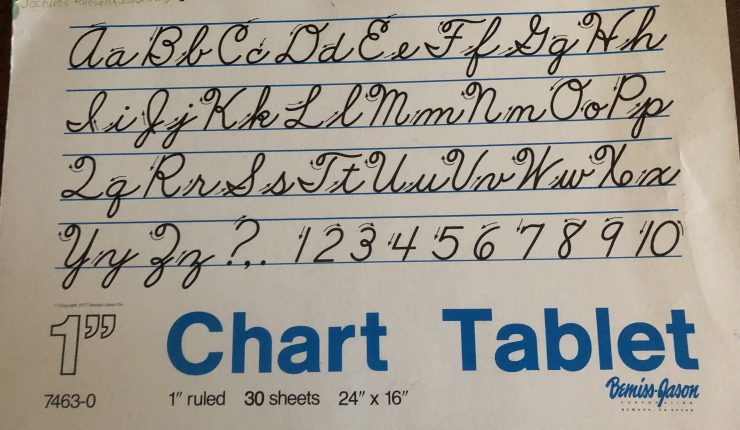 Aa Bb Cc Dd Ee Ff Gg Hh
Ii Jj Kk Ll Mm Nn Oo Pp
Qq Rr Ss Tt Uu Vv Ww Xx
Yy Zz ?,. 1 2 3 4 5 6 7 8 9 10
© Copyright 1977 Bemiss-Jason Co.
1” Chart Tablet
Bemiss-Jason
CORPORATION
7463-0 1” ruled 30 sheets 24” x 16”